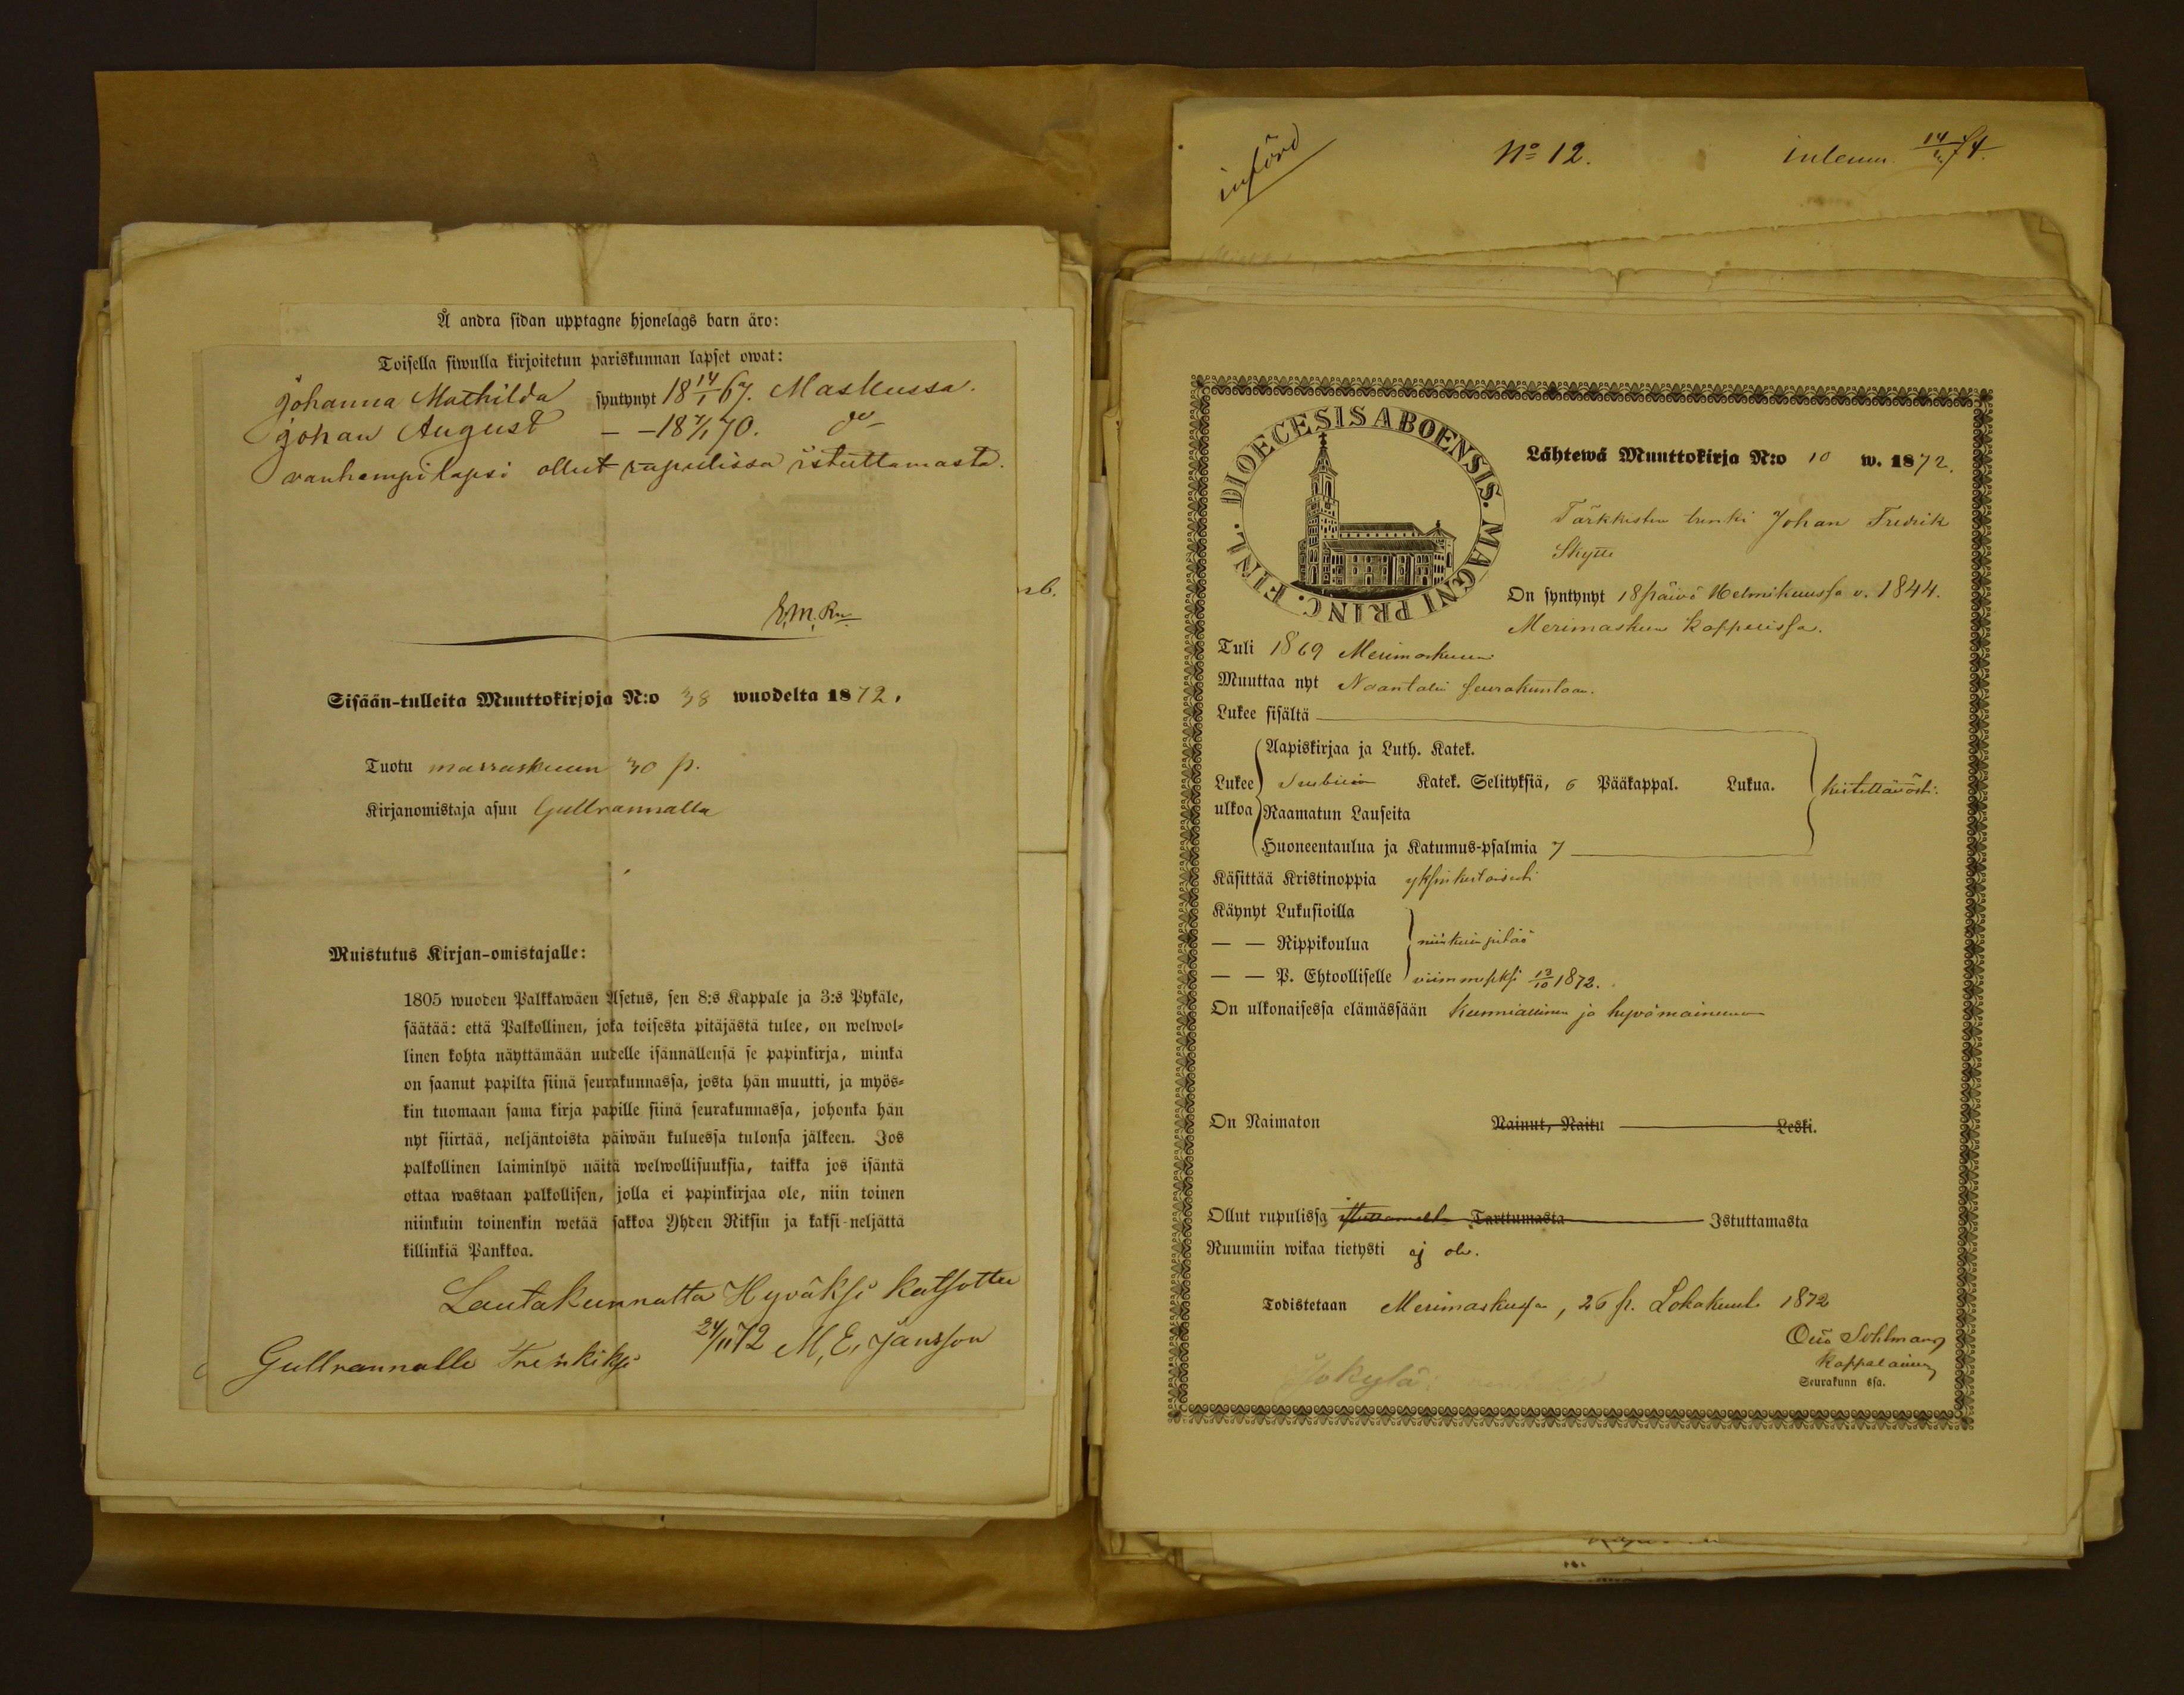 Å andra sidan upptagne hjonelags barn äro:
Toisella siwulla kirjoitetun pariskunnan lapset owat:
Johanna Mathilda syntynyt 18 14/1 67. Maskussa.
Johan August — — 18 7/1 70. do
vanhempi lapsi ollut rupulissa istuttamasta.
E.M. Rn
Sisään-tulleita Muuttokirjoja N:o 38 wuodelta 1872.
Tuotu marraskuun 30 p.
Kirjanomistaja asuu Gullrannalla
Muistutus Kirjan-omistajalle:
1805 wuoden Palkkawäen Asetus, sen 8:s Kappale ja 3:s Pykäle,
säätää: että Palkollinen, joka toisesta pitäjästä tulee, on welwol-
linen kohta näyttämään uudelle isännällensä se papinkirja, minkä
on saanut papilta siinä seurakunnassa, josta hän muutti, ja myös-
kin tuomaan sama kirja papille siinä seurakunnassa, johonka hän
nyt siirtää, neljäntoista päiwän kuluessa tulonsa jälkeen. Jos
palkollinen laiminlyö näitä welwollisuuksia, taikka jos isäntä
ottaa wastaan palkollisen, jolla ei papinkirjaa ole, niin toinen
niinkuin toinenkin wetää sakkoa Yhden Riksin ja kaksi neljättä
killinkiä Pankkoa.
Lautakunnalta Hyväksi katsottu
Gullrannalle Trenkiksi 24/11 72 M. E. Jansson
26.
införd
No 12.
74.
DIOECESIS ABOENSIS. MAGNI PRINC. FINL.
Lähtewä Muuttokirja N:o 10 w. 1872.
Tärkkisten trenki Johan Fredrik
Skytte
On syntynyt 18 päivä Helmikuussa v. 1844.
Merimaskun kappelissa.
Tuli 1869 Merimaskuun
Muuttaa nyt Naantalin seurakuntaan.
Lukee sisältä
Aapiskirjaa ja Luth. Katek.
Lukee Katek. Selityksiä, 6 Pääkappal. Lukua. kiitettävästi.
ulkoa Raamatun Lauseita
Huoneentaulua ja Katumus-psalmia 7
Käsittää Kristinoppia yksinkertaisesti
Käynyt Lukusioilla
— — Rippikoulua niinkuin pitää
— — P. Ehtoolliselle viimmeseksi 13/10 1872.
On ulkonaisessa elämässään kunniallinen ja hyvämaineinen
On Naimaton Nainut, Naitu Leski.
Ollut rupulissa istuttamasta Tarttumasta Istuttamasta
Ruumiin wikaa tietysti ej ole.
Todistetaan Merimaskussa, 26 p. Lokakuuta 1872
Otto Sohlman
Kappalainen
Seurakunn ssa.